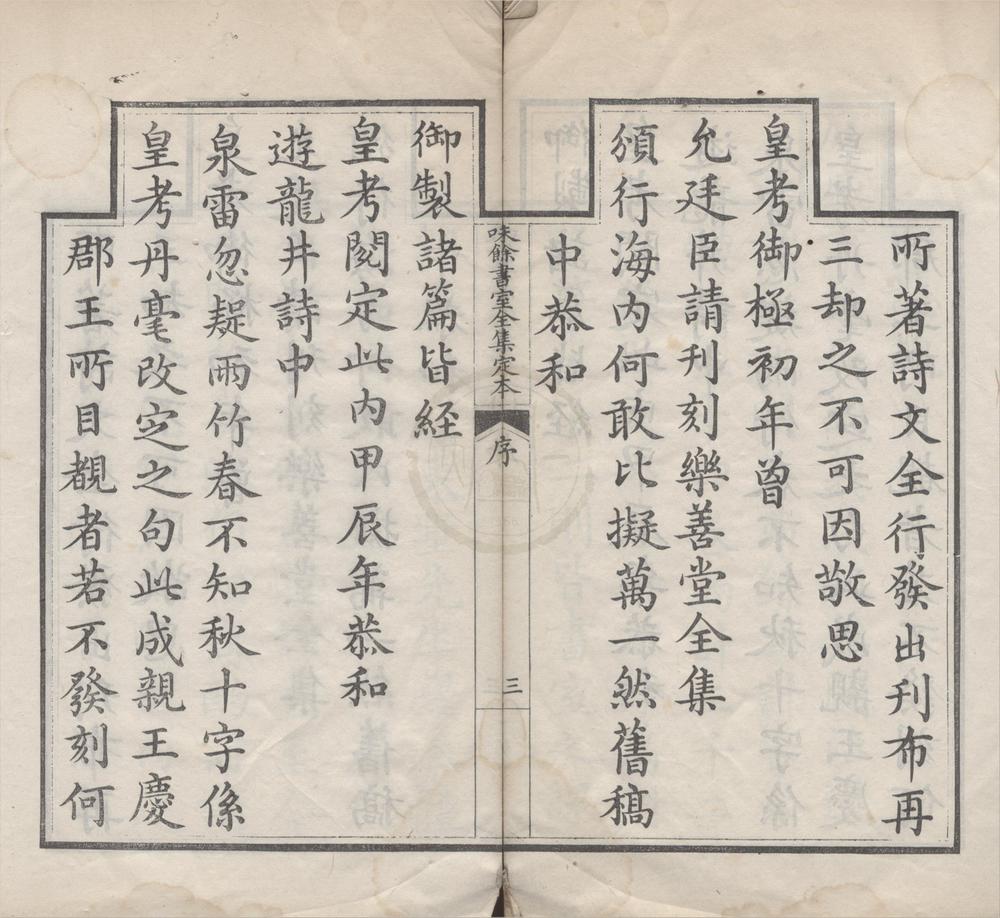 所著詩文全行發出刊布再
三却之不可因敬思
皇考御極初年曾
允廷臣請刊刻樂善堂全集
頒行海内何敢比擬萬一然舊稿
中恭和
味餘書室全集定本
序
三
御製諸篇皆経
皇考閱定此内甲辰年恭和
遊龍井詩中
泉雷忽疑雨竹春不知秋十字係
皇考丹毫改定之句此成親王慶
郡王所目覩者若不發刻何